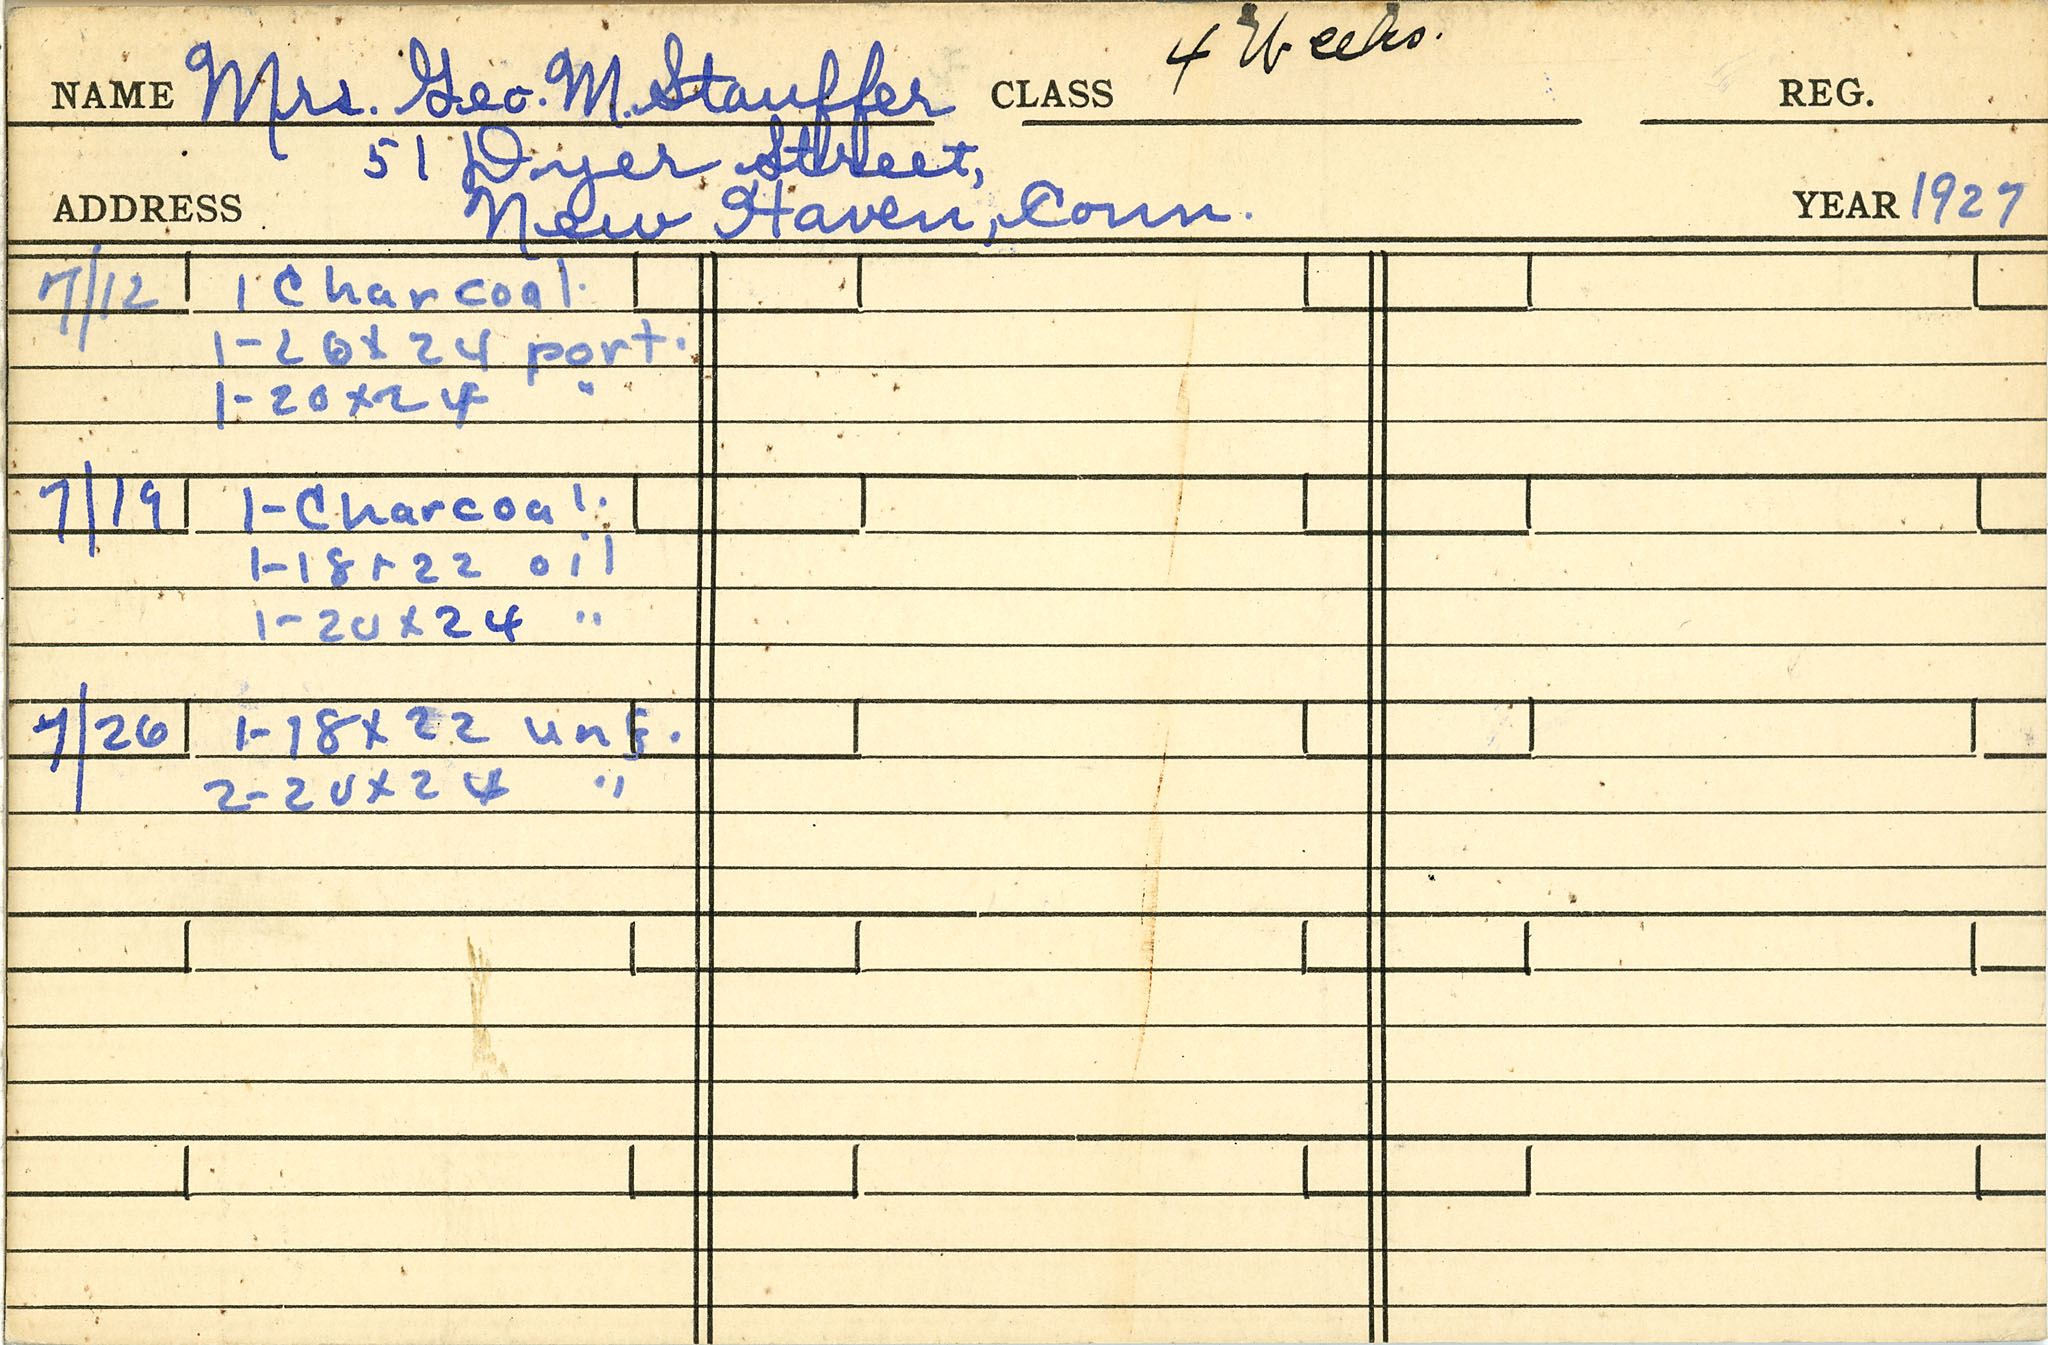 4 Weeks.
NAME Mrs. Geo. M. Stauffer CLASS REG.
51 Dyer Street,
ADDRESS New Haven, Conn. YEAR 1927
7/12 1 Charcoal.
1-20x24 port.
1-20x24 "
7/19 1-Charcoal.
1-18x22 oil
1-20x24 "
7/26 1-18x22 unf.
2-20x24 "